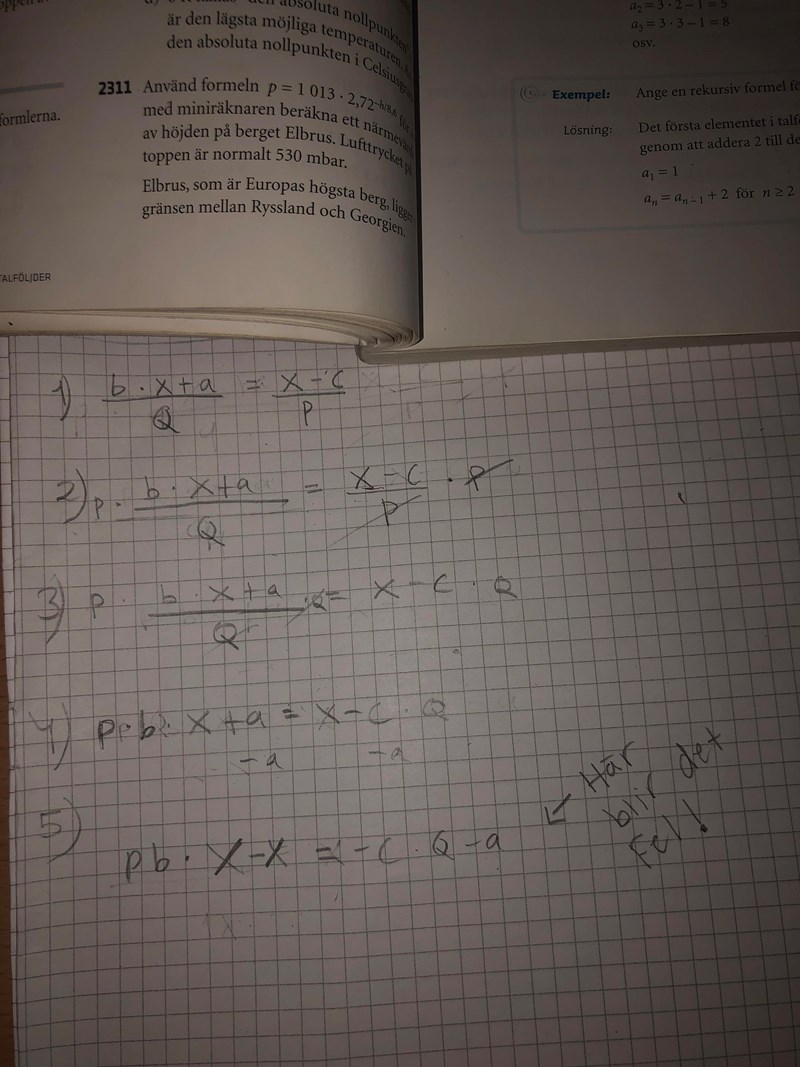 är den lägsta möjliga temperaturen.
den absoluta nollpunkten i
2311 Använd formeln p = 1 013 · 2,72
med miniräknaren beräkna ett
av höjden på berget Elbrus. Lufttrycket på
toppen är normalt 530 mbar.
Elbrus, som är Europas högsta berg, ligger
gränsen mellan Ryssland och Georgien.
formlerna.
TALFÖLJDER
a₂ = 3 · 2 − 1 = 5
a₃ = 3 · 3 − 1 = 8
osv.
Exempel: Ange en rekursiv formel
Lösning: Det första elementet i
genom att addera 2 till
a₁ = 1
aₙ = aₙ₋₁ + 2 för n ≥ 2
1) b · x + a / Q = x − c / P
2) p · b · x + a / Q = x − c / P · P
3) p · b · x + a / Q · Q = x − c · Q
4) p · b · x + a = x − c · Q
−a −a
5) pb · x − x = −c · Q − a
Här
blir det
fel!